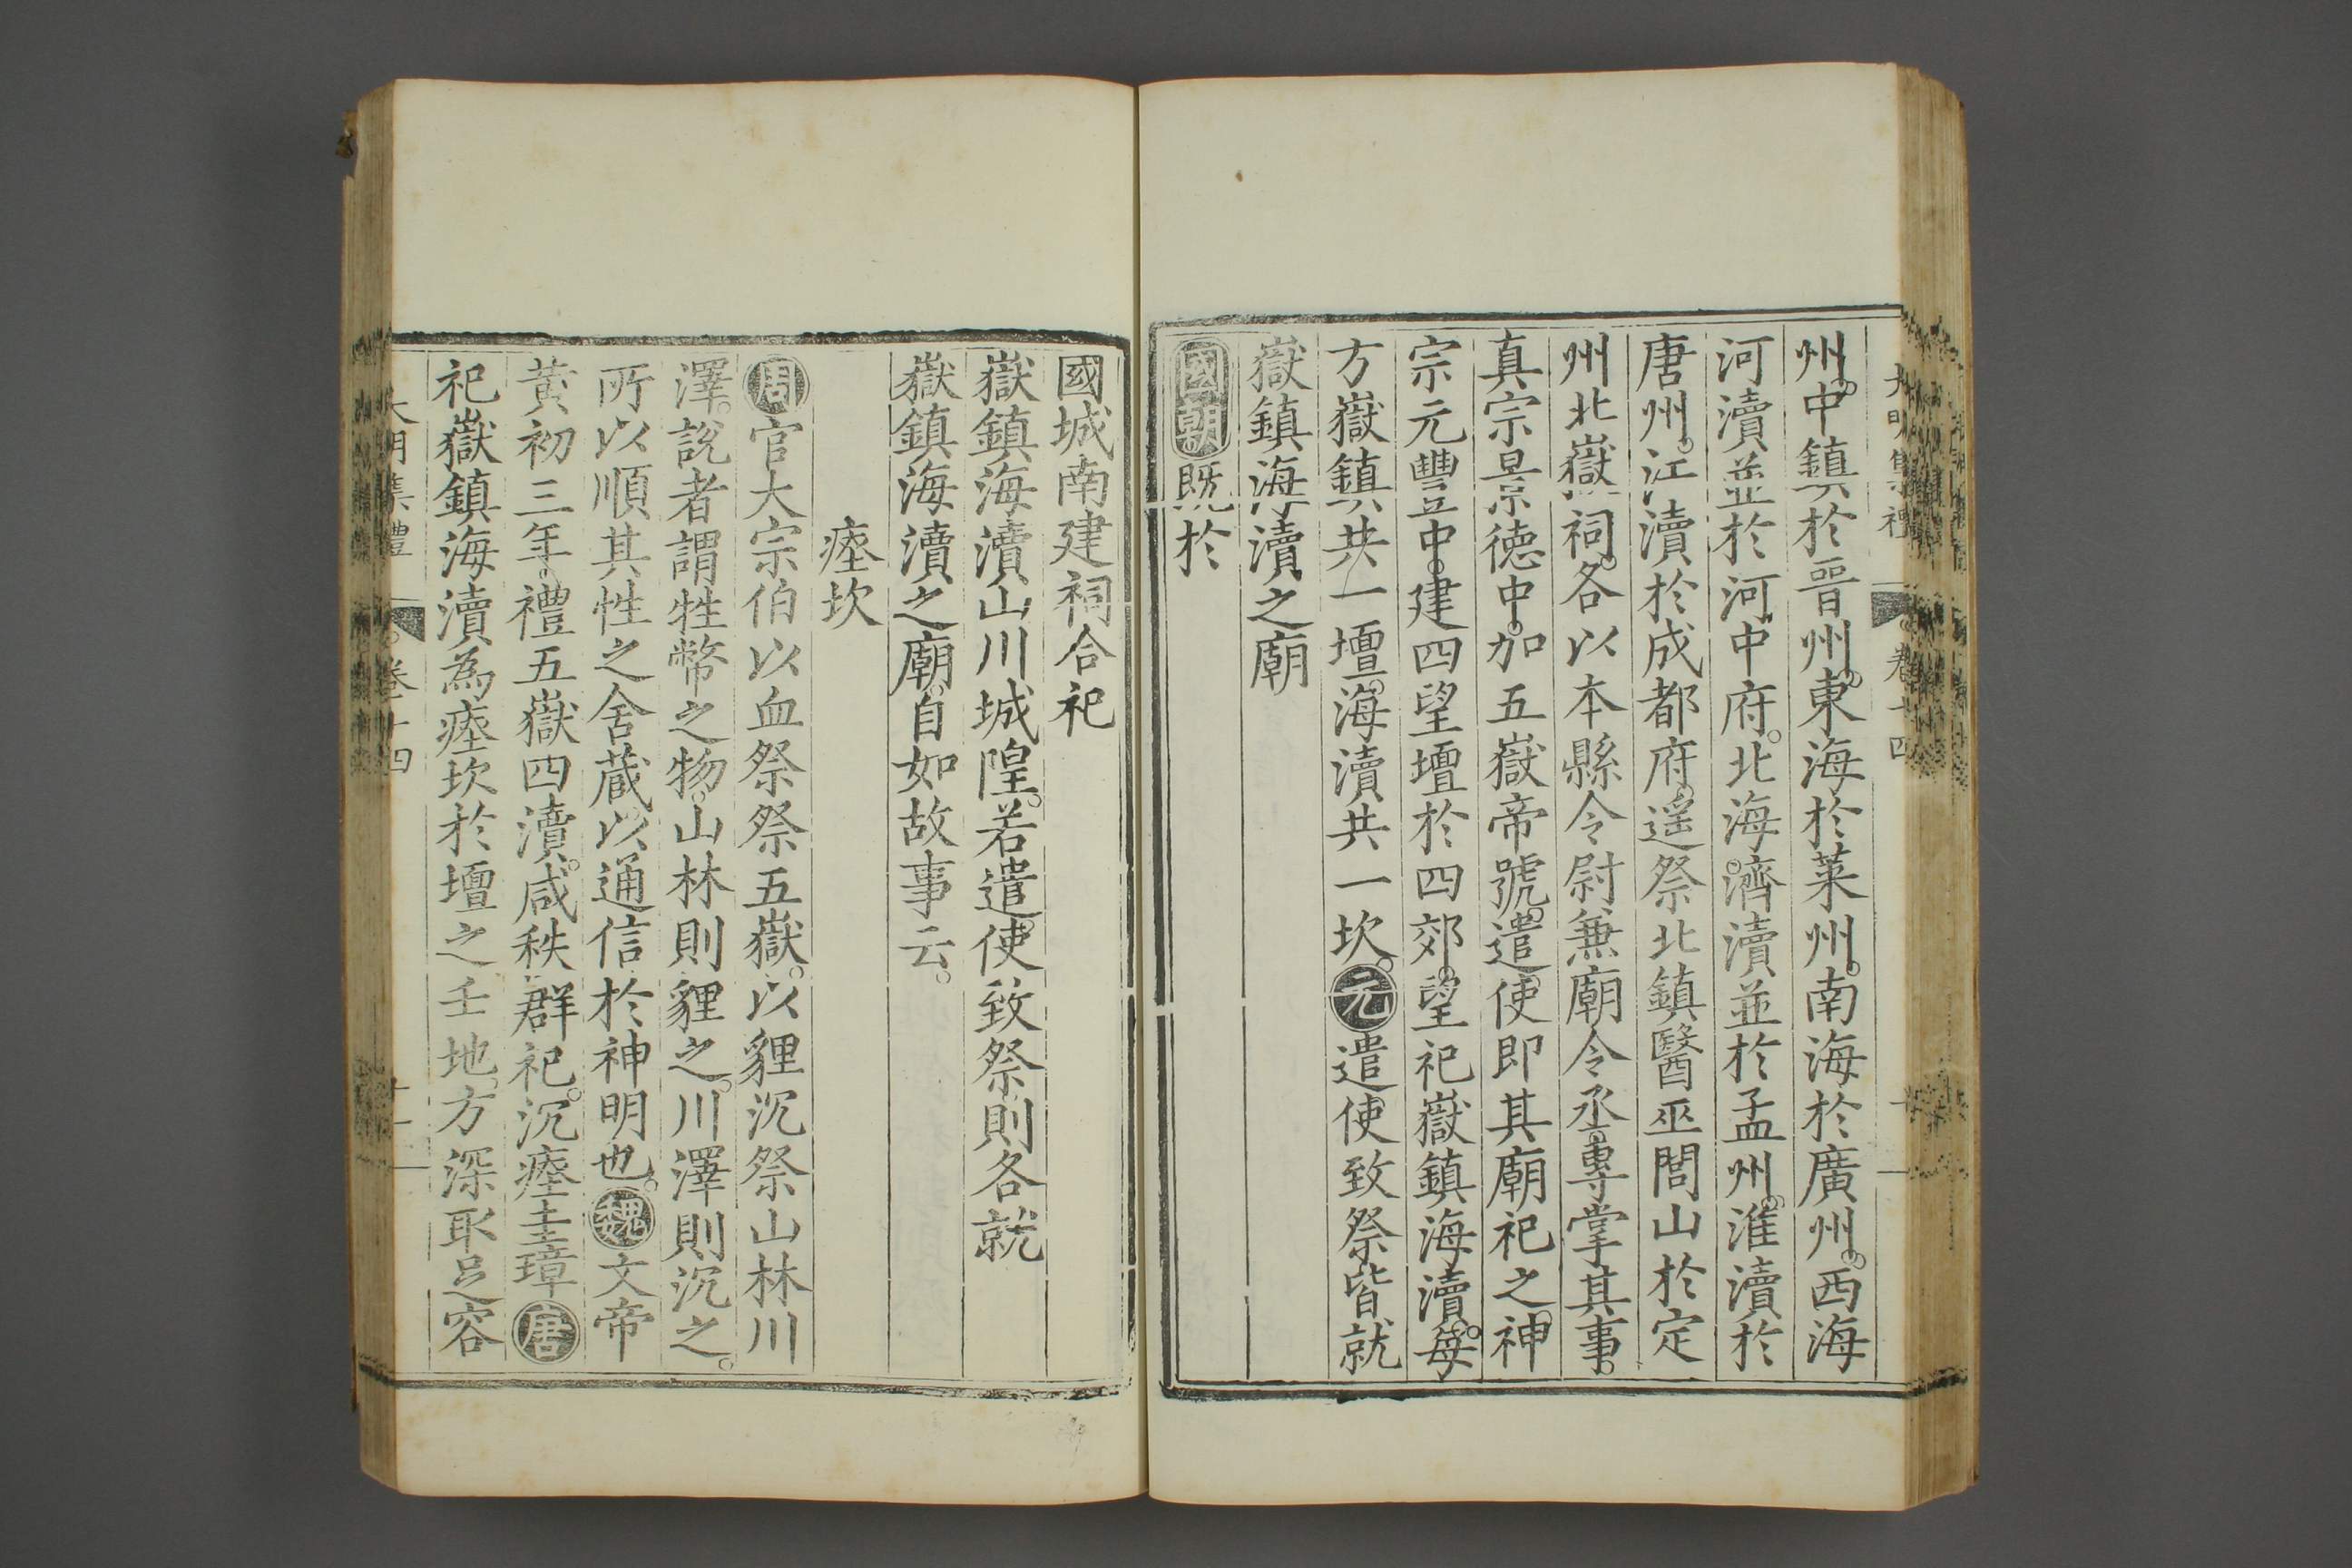 大明集禮 卷十四
州。中鎮於晋州。東海於萊州。南海於廣州。西海
河瀆並於河中府。北海濟瀆並於孟州。淮瀆於
唐州。江瀆於成都府。遥祭北鎮醫巫閭山於定
州北嶽祠。各以本縣令尉兼廟令丞專掌其事。
真宗景德中。加五嶽帝號。遣使即其廟祀之。神
宗元豐中。建四望壇於四郊。望祀嶽鎮海瀆。每
方嶽鎮共一壇。海瀆共一坎。元遣使致祭皆就
嶽鎮海瀆之廟
國朝既於
國城南建祠合祀
嶽鎮海瀆山川城隍。若遣使致祭則各就
嶽鎮海瀆之廟。自如故事云。
瘞坎
周官大宗伯以血祭祭五嶽。以貍沉祭山林川
澤。說者謂牲幣之物。山林則貍之。川澤則沉之。
所以順其性之舍藏。以通信於神明也。魏文帝
黄初三年。禮五嶽四瀆。咸秩群祀。沉瘞圭璋唐
祀嶽鎮海瀆為瘞坎於壇之壬地。方深取足容
大明集禮 卷十四 十一